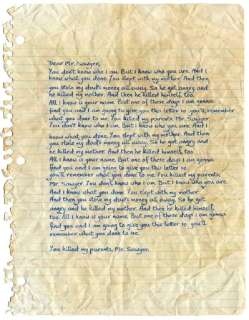 Dear Mr. Sawyer,
You don't know who I am. But I know who you are. And I
know what you done. You slept with my mother. And then
you stole my dad's money all away. So he got angry and
he killed my mother. And then he killed himself, too.
All I know is your name. But one of these days I am gonna
find you and I am going to give you this letter so you'll remember
what you done to me. You killed my parents Mr. Sawyer
You don't know who I am. But I know who you are. And I
know what you done. You slept with my mother. And then
you stole my dad's money all away. So he got angry and
he killed my mother. And then he killed himself, too.
All I know is your name. But one of these days I am gonna
find you and I am going to give you this letter so
you'll remember what you done to me. You killed my parents
Mr. Sawyer. You don't know who I am. But I know who you are.
And I know what you done. You slept with my mother.
And then you stole my dad's money all away. So he got
angry and he killed my mother. And then he killed himself,
too. All I know is your name. But one of these days I am gonna
find you and I am going to give you this letter so you'll
remember what you done to me.
You killed my parents, Mr. Sawyer.